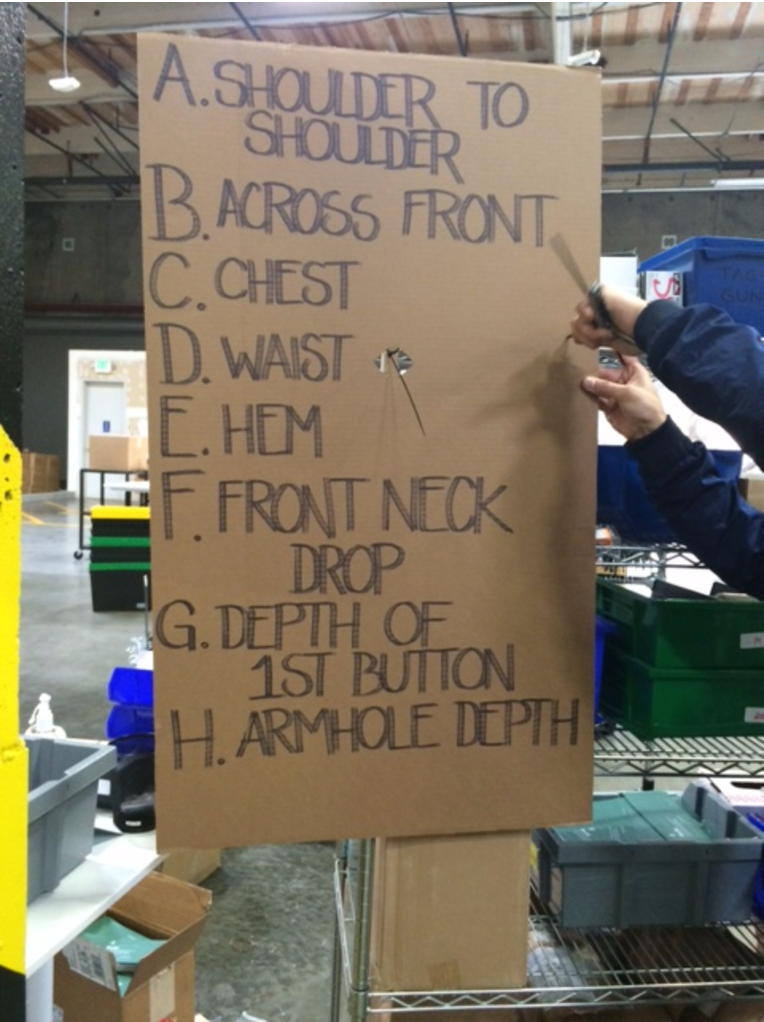 A. SHOULDER TO
SHOULDER
B. ACROSS FRONT
C. CHEST
D. WAIST
E. HEM
F. FRONT NECK
DROP
G. DEPTH OF
1ST BUTTON
H. ARMHOLE DEPTH
TAG
GUN